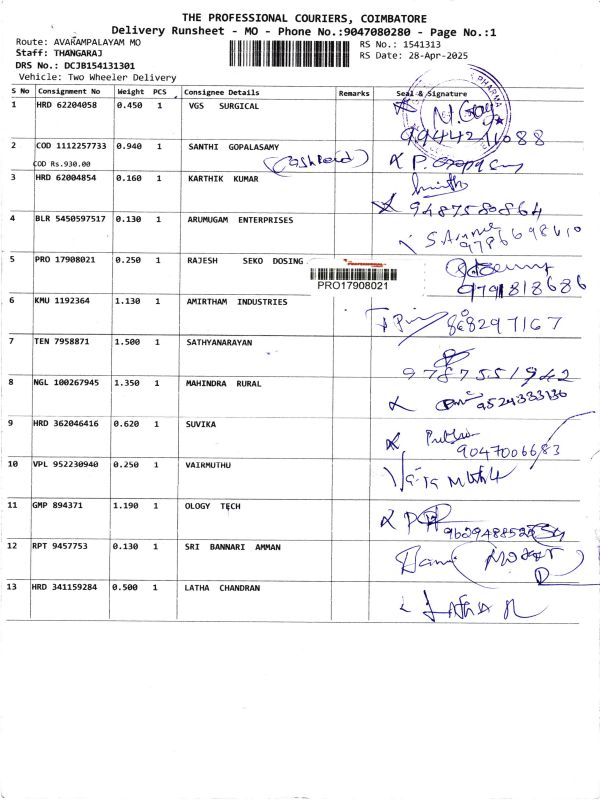 THE PROFESSIONAL COURIERS, COIMBATORE
Delivery Runsheet - MO - Phone No.:9047080280 - Page No.:1
Route: AVARAMPALAYAM MO
RS No.: 1541313
Staff: THANGARAJ
RS Date: 28-Apr-2025
DRS No.: DCJB154131301
Vehicle: Two Wheeler Delivery
S No Consignment No Weight PCS Consignee Details Remarks Seal & Signature
1 HRD 62204058 0.450 1 VGS SURGICAL
PHARMA
9944211088
2 COD 1112257733 0.940 1 SANTHI GOPALASAMY
COD Rs.930.00
3 HRD 62004854 0.160 1 KARTHIK KUMAR
9487580864
4 BLR 5450597517 0.130 1 ARUMUGAM ENTERPRISES
9786698610
5 PRO 17908021 0.250 1 RAJESH SEKO DOSING
PRO17908021
9791818686
6 KMU 1192364 1.130 1 AMIRTHAM INDUSTRIES
868297167
7 TEN 7958871 1.500 1 SATHYANARAYAN
9787551942
8 NGL 100267945 1.350 1 MAHINDRA RURAL
9524333136
9 HRD 362046416 0.620 1 SUVIKA
9047006683
10 VPL 952230940 0.250 1 VAIRMUTHU
11 GMP 894371 1.190 1 OLOGY TECH
12 RPT 9457753 0.130 1 SRI BANNARI AMMAN
13 HRD 341159284 0.500 1 LATHA CHANDRAN